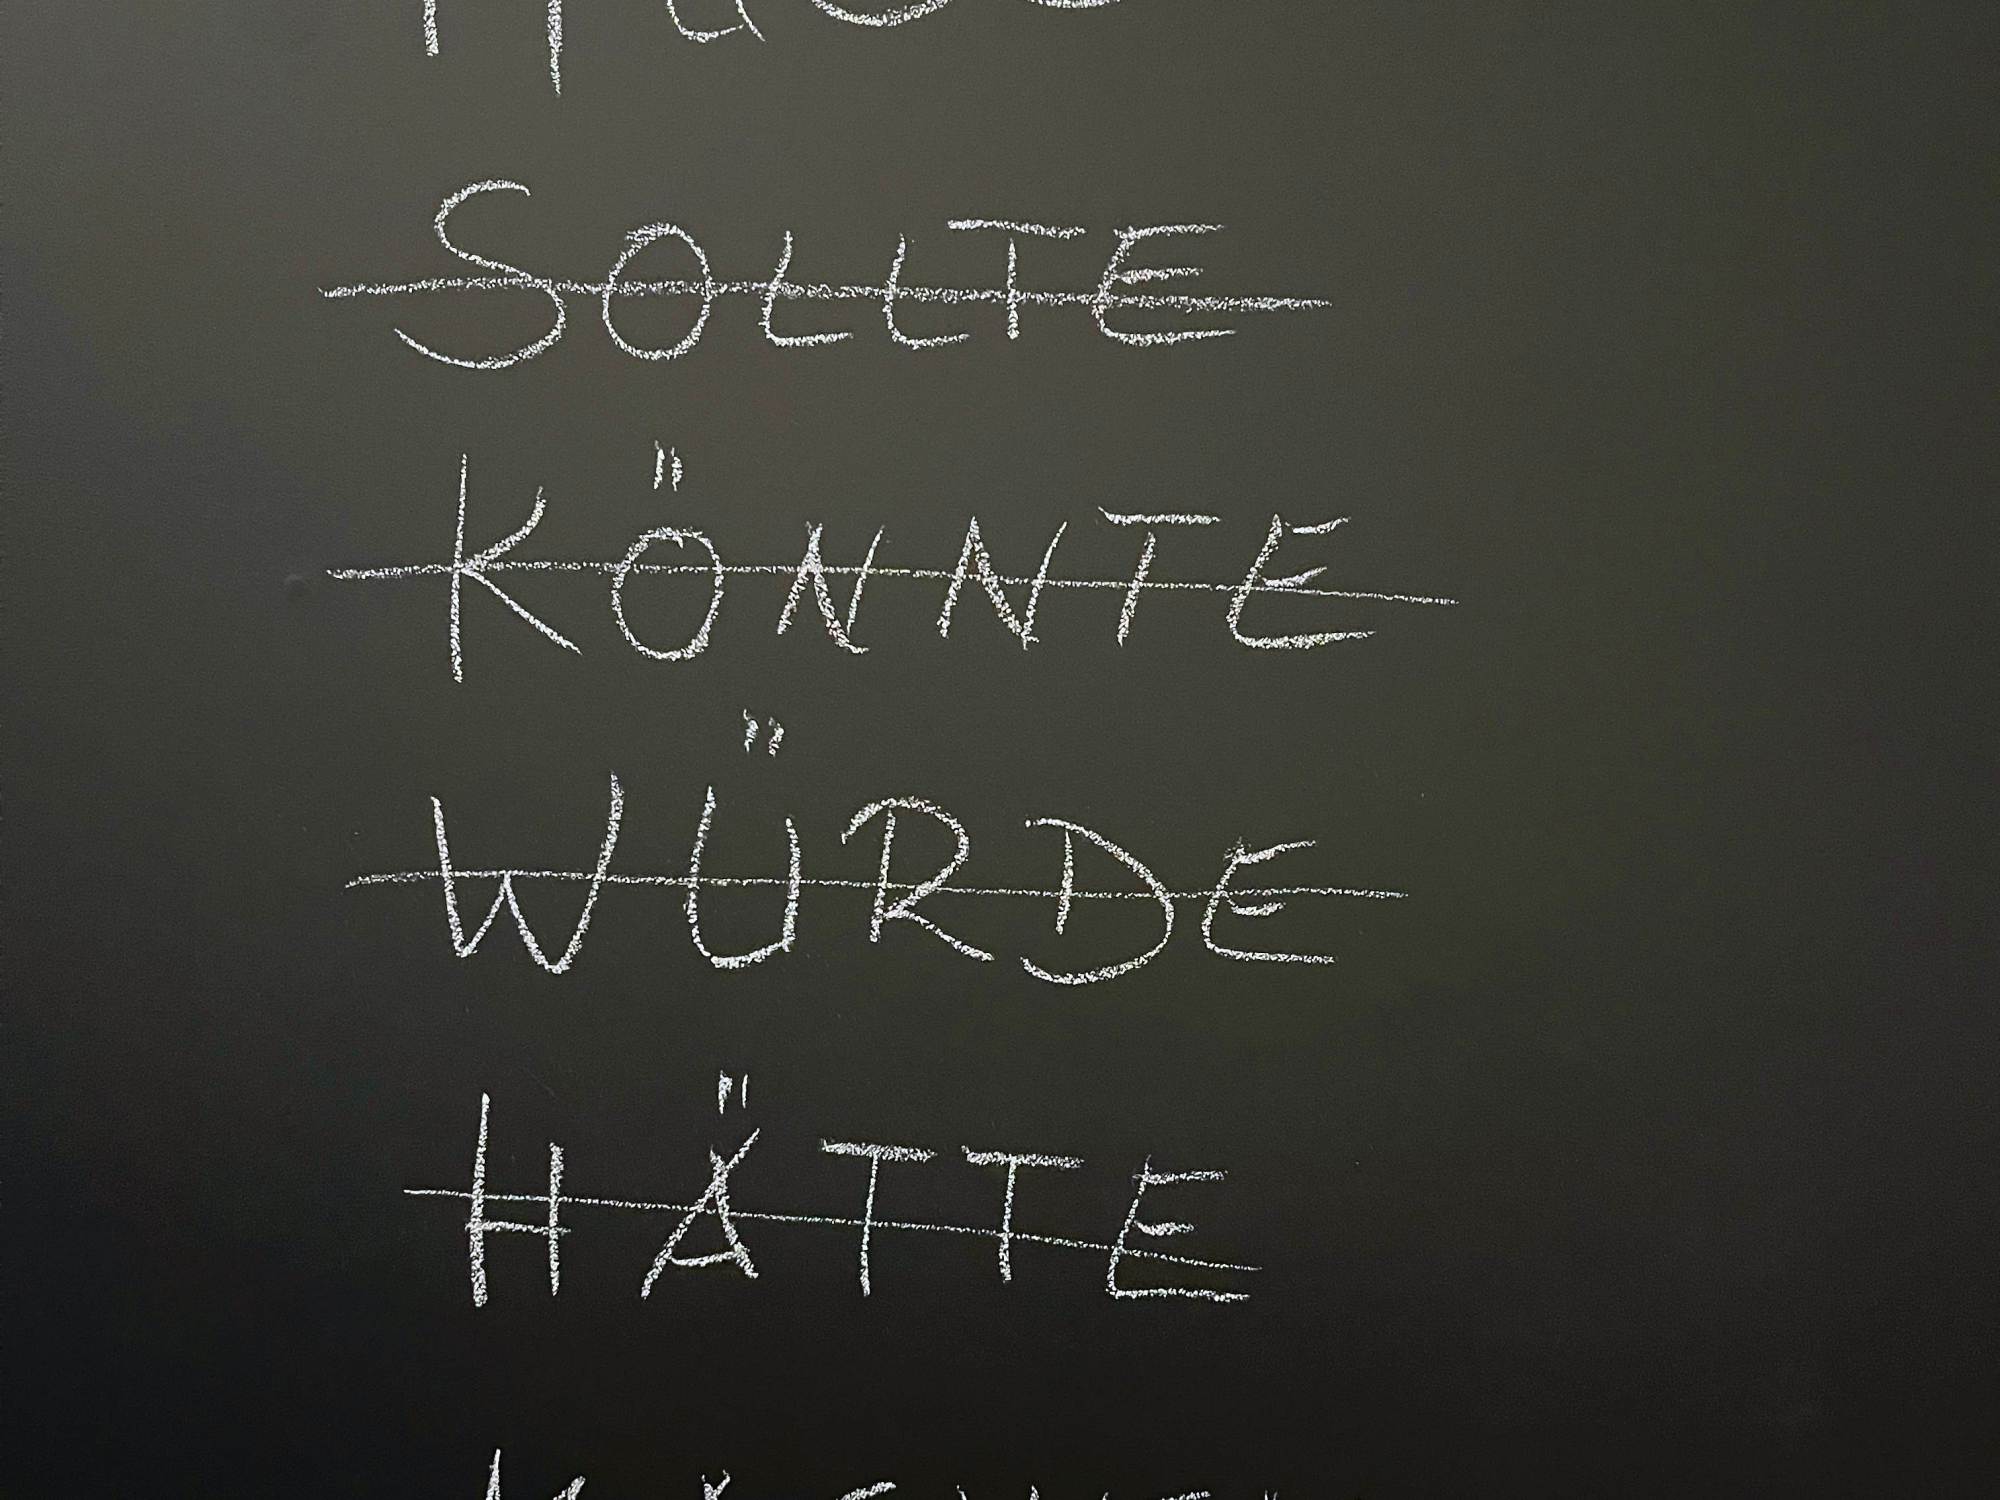 SOLLTE
KÖNNTE
WÜRDE
HÄTTE